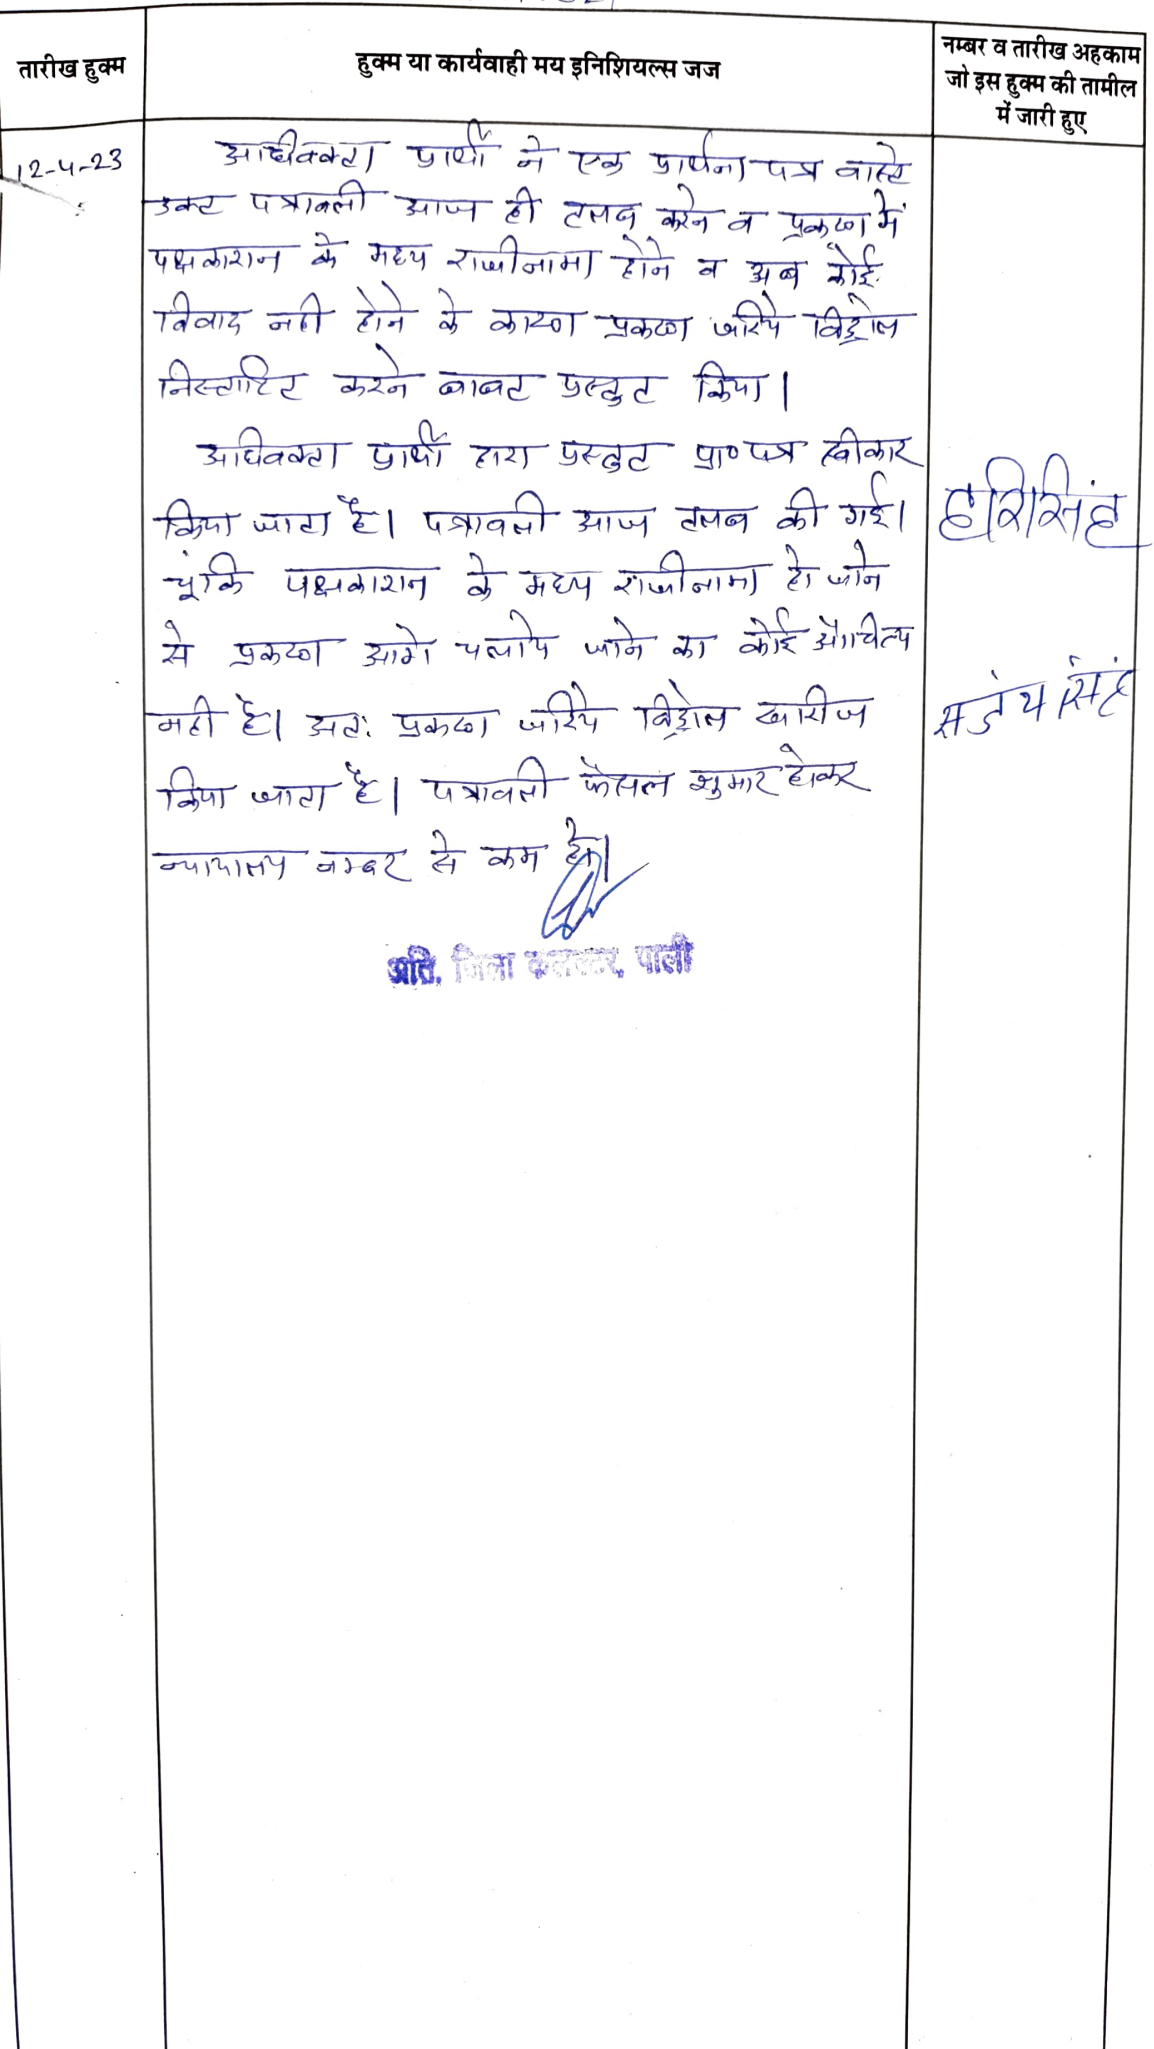 तारीख हुक्म
हुक्म या कार्यवाही मय इनिशियल्स जज
नम्बर व तारीख अहकाम
जो इस हुक्म की तामील
में जारी हुए
12-4-23
अधिवक्ता प्रार्थी ने एक प्रार्थना पत्र वास्ते
उक्त पत्रावली आज ही तलब करने व प्रकरण में
पक्षकारान के मध्य राजीनामा होने व अब कोई
विवाद नही होने के कारण प्रकरण जरिये विड्रोल
निस्तारित करने बाबत प्रस्तुत किया।
अधिवक्ता प्रार्थी द्वारा प्रस्तुत प्रा० पत्र स्वीकार
किया जाता है। पत्रावली आज तलब की गई।
चूंकि पक्षकारान के मध्य राजीनामा हो जाने
से प्रकरण आगे चलाये जाने का कोई औचित्य
नही है। अतः प्रकरण जरिये विड्रोल खारीज
किया जाता है। पत्रावली फैसल शुमार होकर
न्यायालय नम्बर से कम हो।
हरिसिंह
सिंह
अति. जिला कलक्टर, पाली